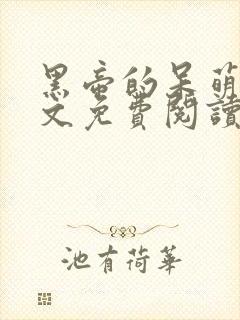 黑帝的呆萌
文免費閱讀
池有荷華